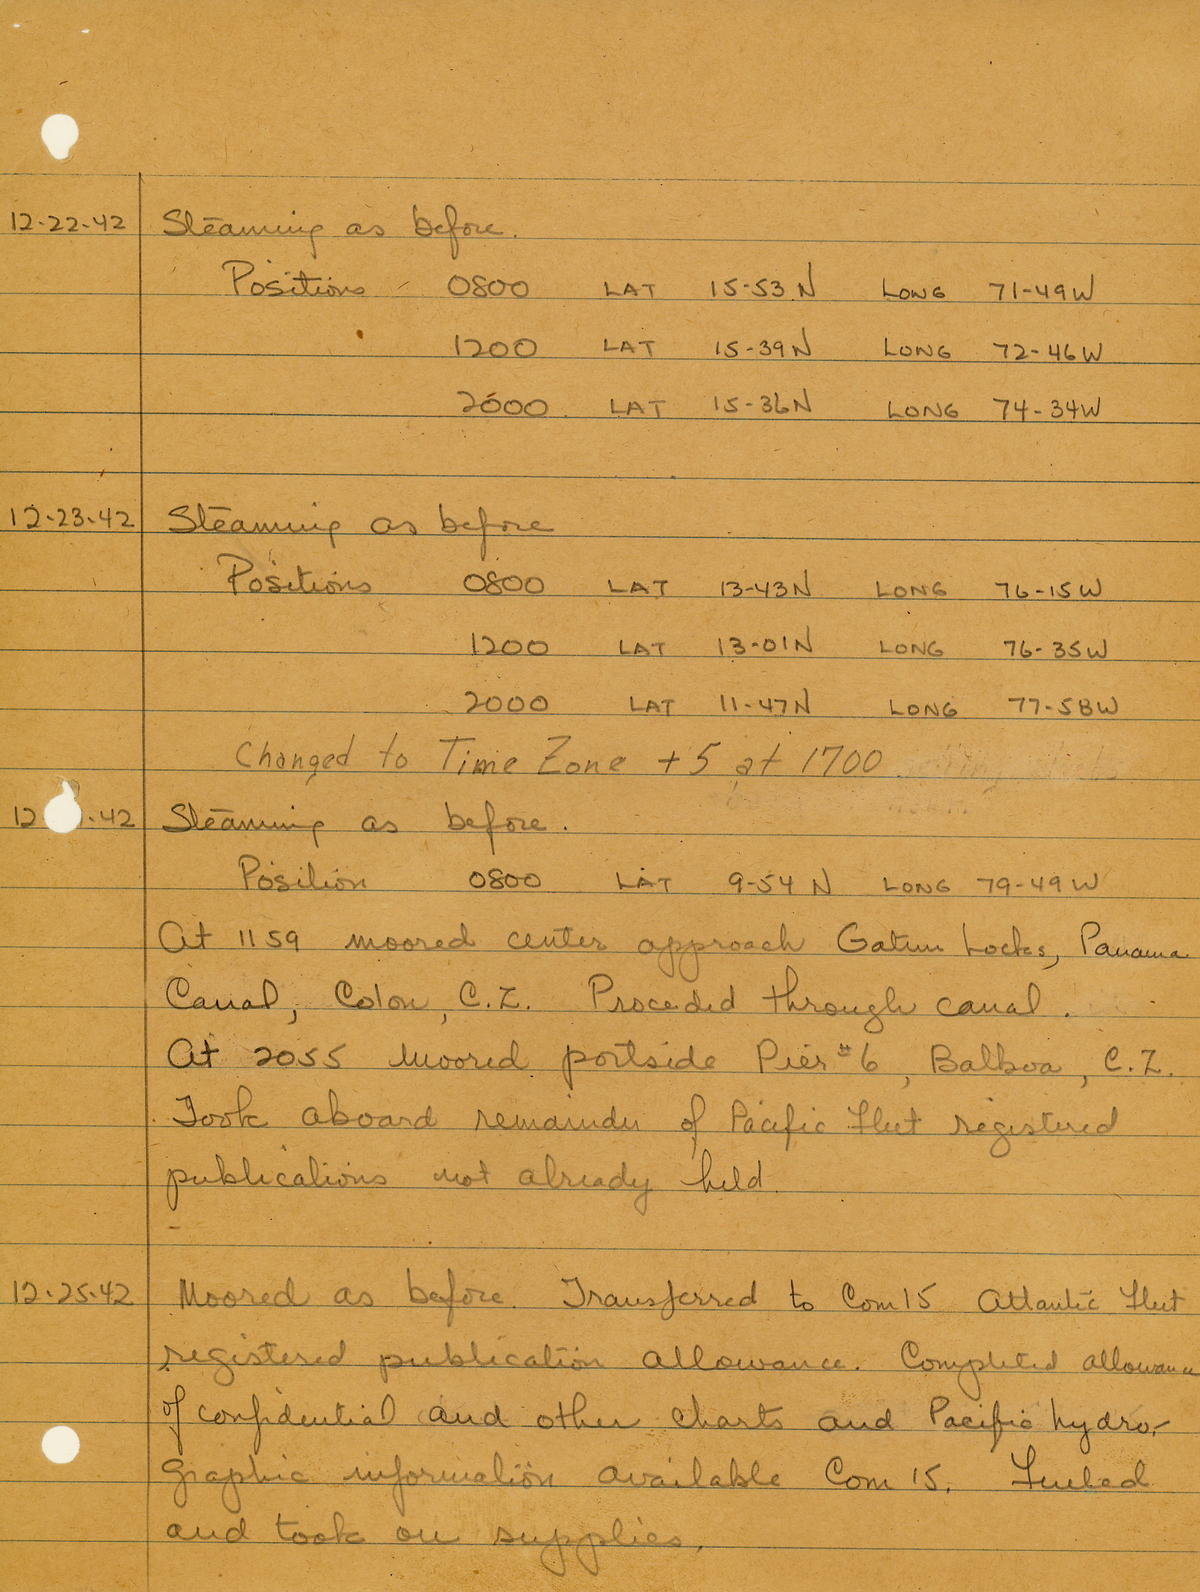 12-22-42 Steaming as before.
Positions - 0800 LAT 15-53 N LONG 71-49W
1200 LAT 15-39N LONG 72-46W
2000 LAT 15-36N LONG 74-34W
12-23-42 Steaming as before
Positions 0800 LAT 13-43N LONG 76-15W
1200 LAT 13-01N LONG 76-35W
2000 LAT 11-47N LONG 77-58W
Changed to Time Zone +5 at 1700
12 .42 Steaming as before.
Position 0800 LAT 9-54 N LONG 79-49W
At 1159 moored center approach Gatun Locks, Panama
Canal, Colon, C.Z. Proceded through canal.
At 2055 moored portside Pier #6, Balboa, C.Z.
Took aboard remainder of Pacific Fleet registered
publications not already held.
12-25-42 Moored as before. Transferred to Com 15 Atlantic Fleet
registered publication allowance. Completed allowance
of confidential and other charts and Pacific hydro-
graphic information available Com 15. Fueled
and took on supplies.